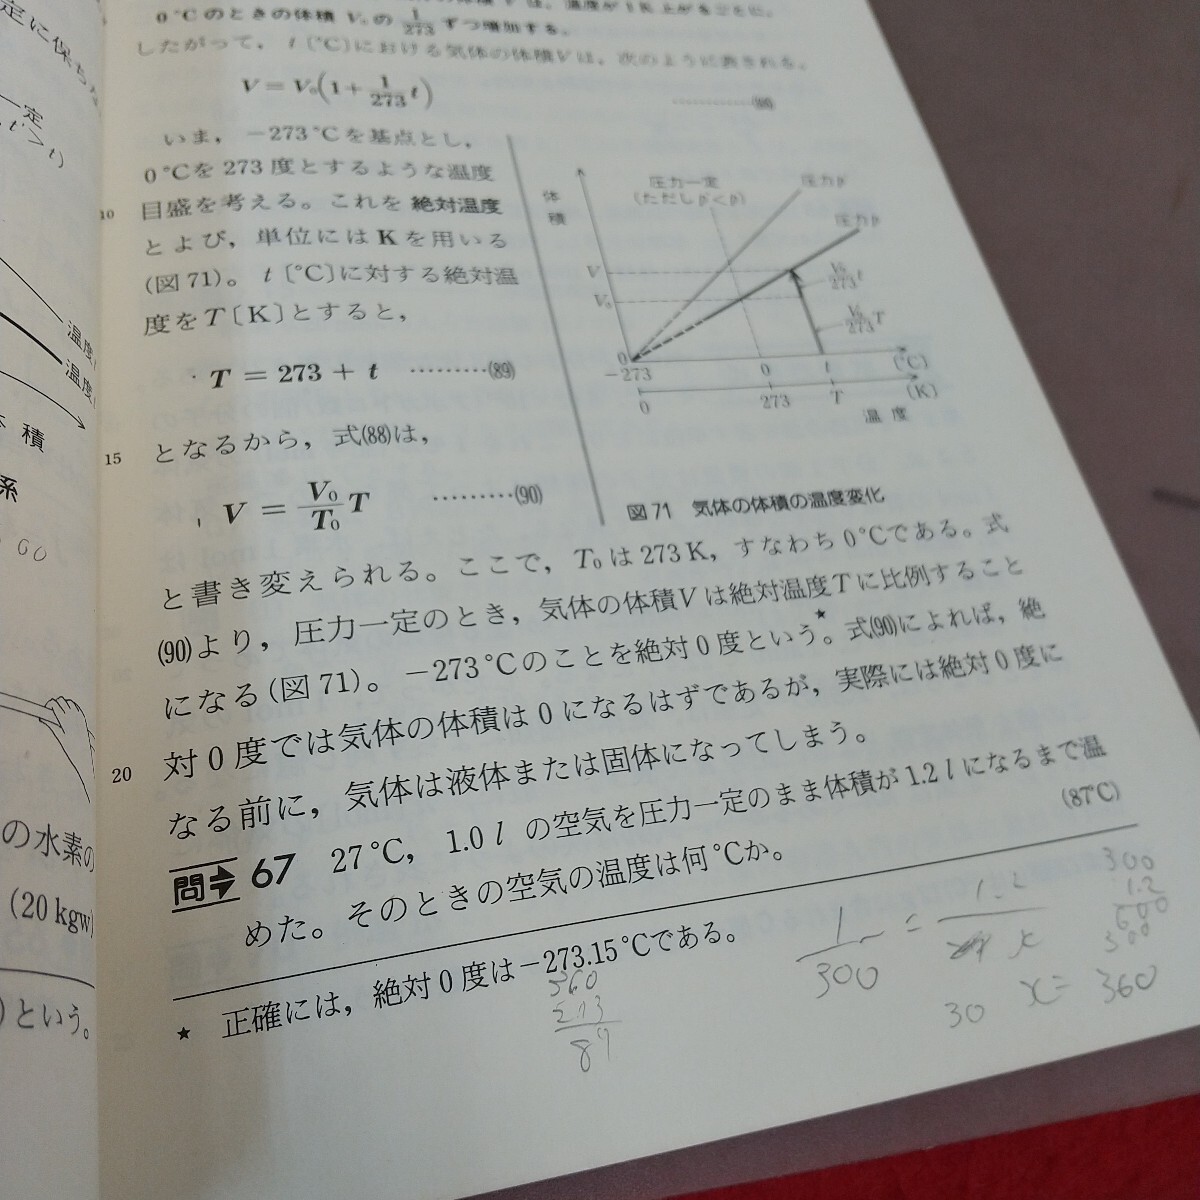 定に保ち
一定
t'>t)
温度
温度
積
系
60
の水素の
(20 kgw)
という。
0℃のときの体積 V₀の 1/273 ずつ増加する。
したがって，t〔℃〕における気体の体積Vは，次のように表される。
V = V₀(1+ 1/273 t) …………(88)
いま，−273℃を基点とし，
0℃を273度とするような温度
10 目盛を考える。これを 絶対温度
とよび，単位にはKを用いる
(図71)。t〔℃〕に対する絶対温
度をT〔K〕とすると，
T = 273 + t ………(89)
15 となるから，式(88)は，
V = V₀/T₀ T ………(90)
体積
圧力一定
(ただしp'<p)
圧力p'
圧力p
V
V₀
V₀/273 t
V₀/273 T
0
−273 0 t (℃)
0 273 T (K)
温度
図71 気体の体積の温度変化
と書き変えられる。ここで，T₀は273K，すなわち0℃である。式
(90)より，圧力一定のとき，気体の体積Vは絶対温度Tに比例すること
になる(図71)。−273℃のことを絶対0度という★。式(90)によれば，絶
20 対0度では気体の体積は0になるはずであるが，実際には絶対0度に
なる前に，気体は液体または固体になってしまう。
問 67 27℃，1.0 l の空気を圧力一定のまま体積が1.2 l になるまで温
めた。そのときの空気の温度は何℃か。 (87℃)
★ 正確には，絶対0度は−273.15℃である。
1/300 = 1.2/x
x = 360
30
300
1.2
600
300
360
273
87